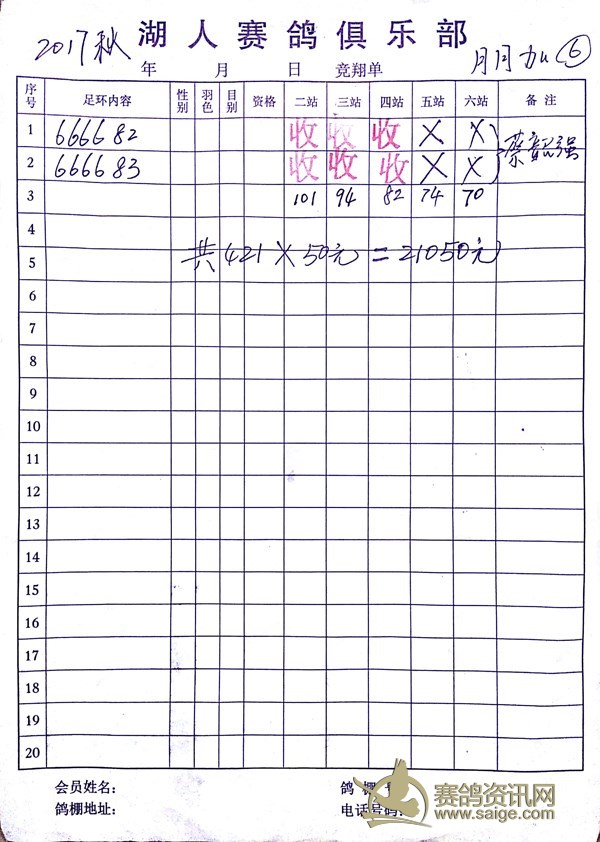 2017秋 湖人赛鸽俱乐部
年 月 日 竞翔单 月月加 ⑥
序号 足环内容 性别 羽色 目别 资格 二站 三站 四站 五站 六站 备注
1 666682 收 收 收 X X 蔡韶强
2 666683 收 收 收 X X
3 101 94 82 74 70
4
共421X50元=21050元
5
6
7
8
9
10
11
12
13
14
15
16
17
18
19
20
会员姓名: 鸽棚
鸽棚地址: 电话号码:
赛鸽资讯网
www.saige.com